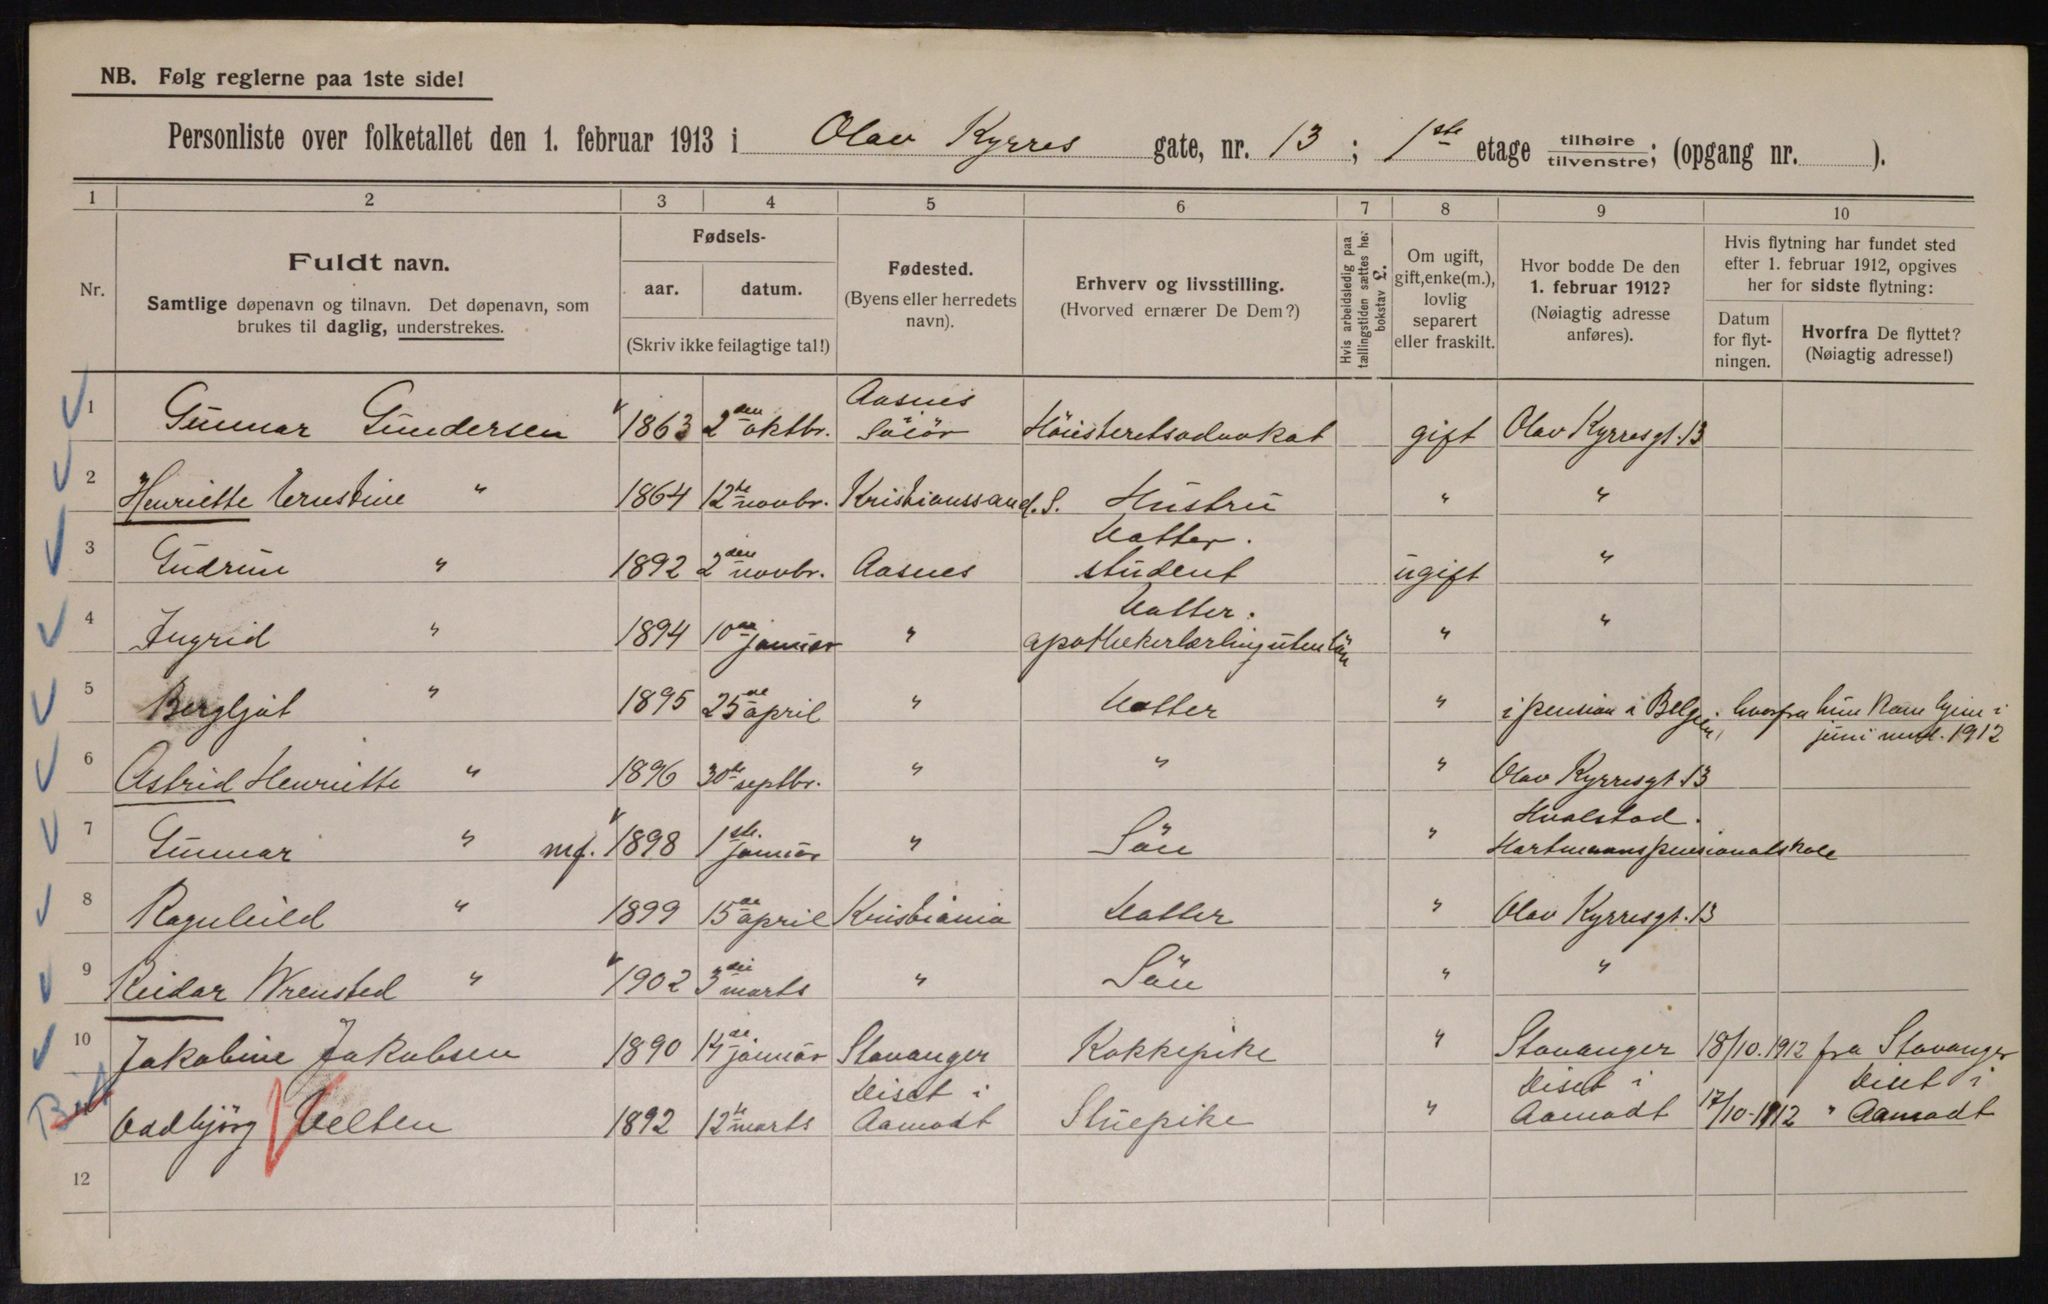 NB. Følg reglerne paa 1ste side!
Personliste over folketallet den 1. februar 1913 i Olav Kyrres gate, nr. 13; 1ste etage tilhøire/tilvenstre; (opgang nr. ).
1 2 3 4 5 6 7 8 9 10
Nr.
Fuldt navn.
Samtlige døpenavn og tilnavn. Det døpenavn, som
brukes til daglig, understrekes.
Fødsels-
aar. datum.
(Skriv ikke feilagtige tal!)
Fødested.
(Byens eller herredets
navn).
Erhverv og livsstilling.
(Hvorved ernærer De Dem?)
Hvis arbeidsledig paa
tællingstiden sættes her
bokstav L.
Om ugift,
gift, enke(m.),
lovlig
separert
eller fraskilt.
Hvor bodde De den
1. februar 1912?
(Nøiagtig adresse
anføres).
Hvis flytning har fundet sted
efter 1. februar 1912, opgives
her for sidste flytning:
Datum
for flyt-
ningen.
Hvorfra De flyttet?
(Nøiagtig adresse!)
1 Gunnar Gundersen 1863 2den oktbr. Aasnes Solør Höiesteretsadvokat gift Olav Kyrresgt. 13
2 Henriette Ernstine " 1864 12te novbr. Kristianssand. S. Hustru " "
3 Gudrun " 1892 2den novbr. Aasnes Datter. student ugift "
4 Ingrid " 1894 10de januar " Datter. apothekerlærling uten lön " "
5 Bergljot " 1895 25de april " Datter " i pension i Belgien, hvorfra hun kom hjem i juni mnd. 1912
6 Astrid Henriette " 1896 30te septbr. " " " Olav Kyrresgt. 13
7 Gunnar " mf. 1898 1ste januar " Sön " Hvalstad. Hartmanns pensionatskole
8 Ragnhild " 1899 15de april Kristiania Datter " Olav Kyrresgt. 13
9 Reidar Wrensted " 1902 3die marts " Sön " "
10 Jakobine Jakobsen 1890 14de januar Stavanger Kokkepike " Stavanger 18/10.1912 fra Stavanger
11 Oddbjörg Velten 1892 12te marts Diset i Aamodt Stuepike " Diset i Aamodt 17/10-1912 " Diset i Aamodt
12